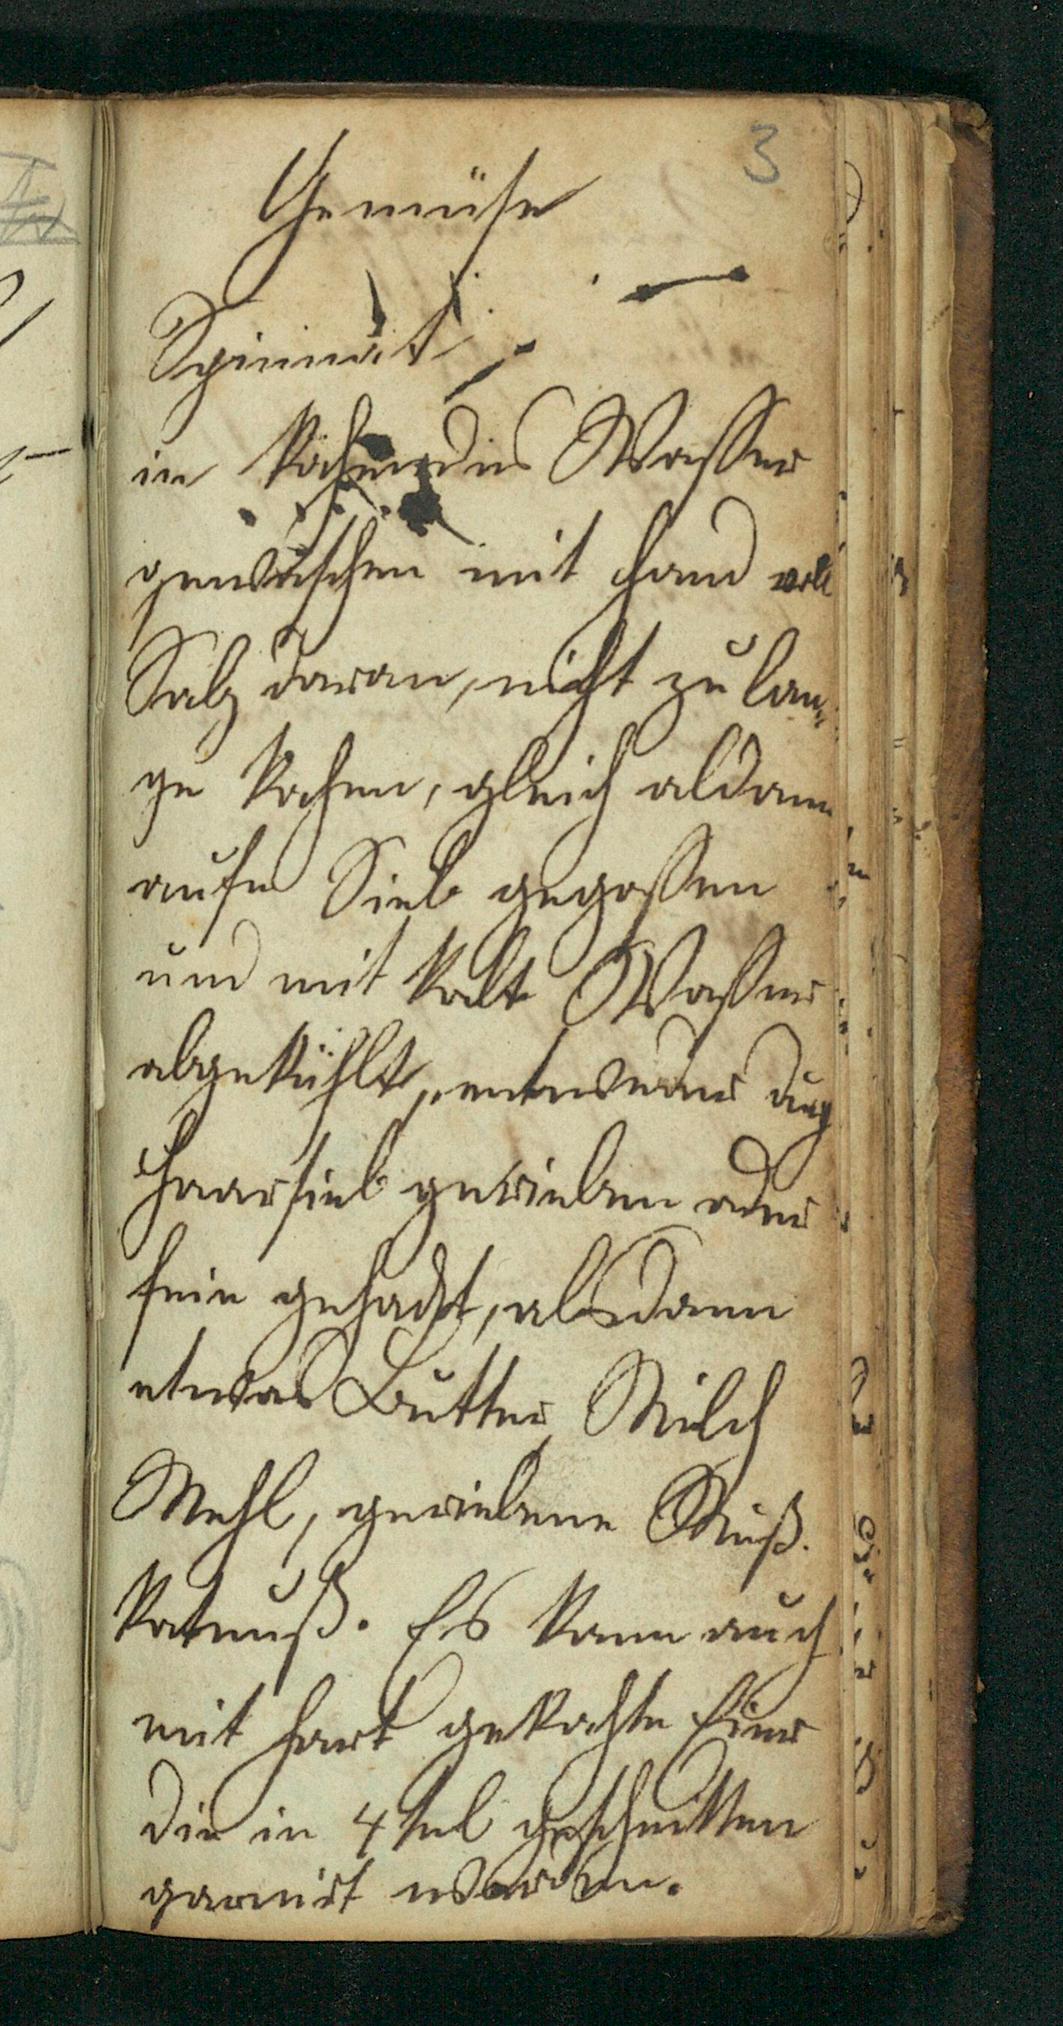 3
Gemüse
Spinnat
in kochendes Wasser
gewaschen mit Hand voll
Salz daran, nicht zu lan-
ge kochen, gleich aldann
aufn Sieb gegossen
und mit kalt Wasser
abgekühlt, entweder durch
Haarsieb gerieben oder
fein gehackt, alsdann
etwas Butter, Milch
Mehl, geriebene Muß-
katnuß. Es kann auch
mit hart gekochte Eier
die in 4tel geschnitten
garnirt werden.